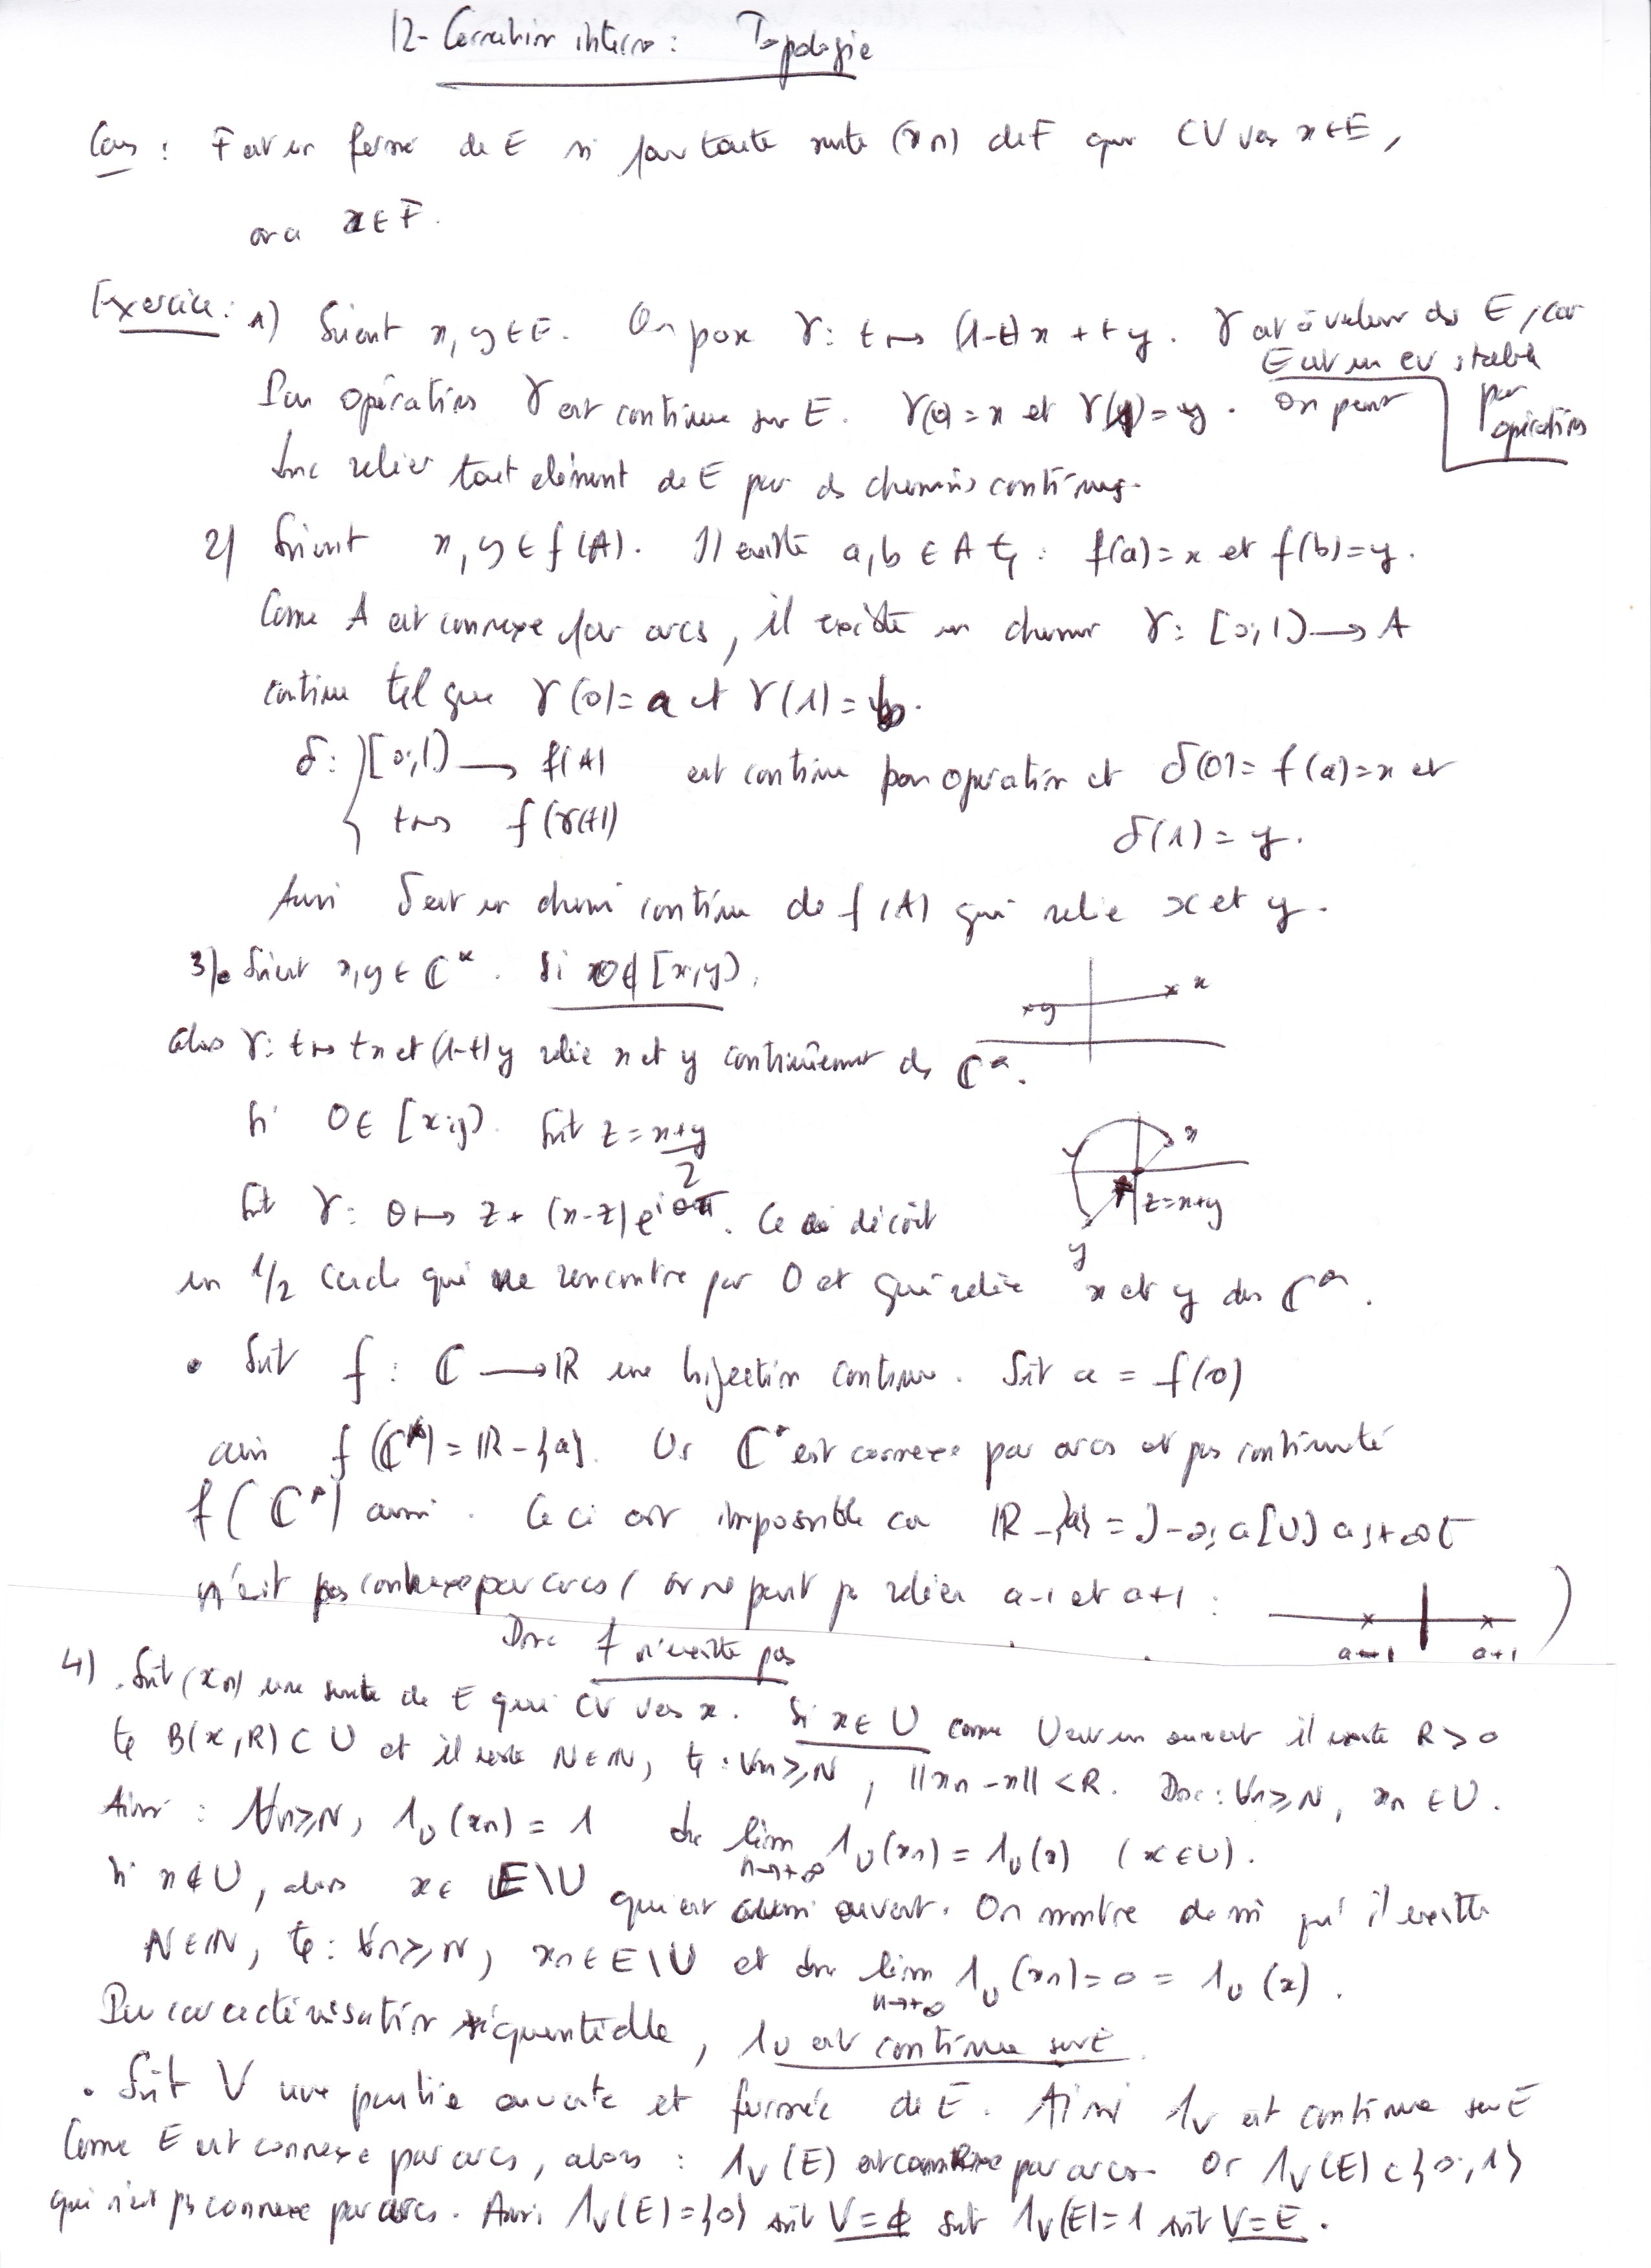 12- Correction interro : Topologie
Cours : F est un fermé de E si pour toute suite (xn) de F qui CV vers x ∈ E,
on a x ∈ F.
Exercice : 1) Soient x, y ∈ E. On pose γ : t ↦ (1-t)x + ty. γ est à valeur ds E, car
E est un ev stable
par
opérations
Par opérations γ est continue sur E. γ(0) = x et γ(1) = y. On peut
donc relier tout élément de E par ds chemins continus.
2) Soient x, y ∈ f(A). Il existe a, b ∈ A tq : f(a) = x et f(b) = y.
Comme A est connexe par arcs, il existe un chemin γ : [0;1] → A
continu tel que γ(0) = a et γ(1) = b.
δ : { [0;1] → f(A) est continue par opération et δ(0) = f(a) = x et
t ↦ f(γ(t)) δ(1) = y.
Ainsi δ est un chemin continu de f(A) qui relie x et y.
3) • Soient x, y ∈ ℂ*. Si 0 ∉ [x, y],
x
y
alors γ : t ↦ tx et (1-t)y relie x et y continûment ds ℂ*.
Si 0 ∈ [x; y]. Soit z = (x+y)/2
x
z = x+y
y
Soit γ : θ ↦ z + (x-z)e^{iθπ}. Ce ci décrit
un 1/2 cercle qui ne rencontre pas 0 et qui relie x et y dans ℂ*.
• Soit f : ℂ → ℝ une bijection continue. Soit a = f(0)
ainsi f(ℂ*) = ℝ - {a}. Or ℂ* est connexe par arcs et par continuité
f(ℂ*) aussi. Ce ci est impossible car ℝ - {a} = ]-∞; a[ ∪ ] a; +∞[
n'est pas connexe par arcs ( on ne peut pas relier a-1 et a+1 : )
a-1 a+1
Donc f n'existe pas
4) . Soit (xn) une suite de E qui CV vers x. Si x ∈ U comme U est un ouvert il existe R > 0
tq B(x, R) ⊂ U et il existe N ∈ ℕ, tq : ∀n ≥ N, ||xn - x|| < R. Donc : ∀n ≥ N, xn ∈ U.
Ainsi : ∀n ≥ N, 1_U(xn) = 1 donc lim_{n→+∞} 1_U(xn) = 1_U(x) (x ∈ U).
Si x ∉ U, alors x ∈ E\U qui est aussi ouvert. On montre de mm qu'il existe
N ∈ ℕ, tq : ∀n ≥ N, xn ∈ E\U et donc lim_{n→+∞} 1_U(xn) = 0 = 1_U(x).
Par caractérisation séquentielle, 1_U est continue sur E.
• Soit V une partie ouverte et fermée de E. Ainsi 1_V est continue sur E
Comme E est connexe par arcs, alors : 1_V(E) est connexe par arcs. Or 1_V(E) ⊂ {0, 1}
qui n'est ps connexe par arcs. Ainsi 1_V(E) = {0} soit V = ∅ soit 1_V(E) = 1 soit V = E.